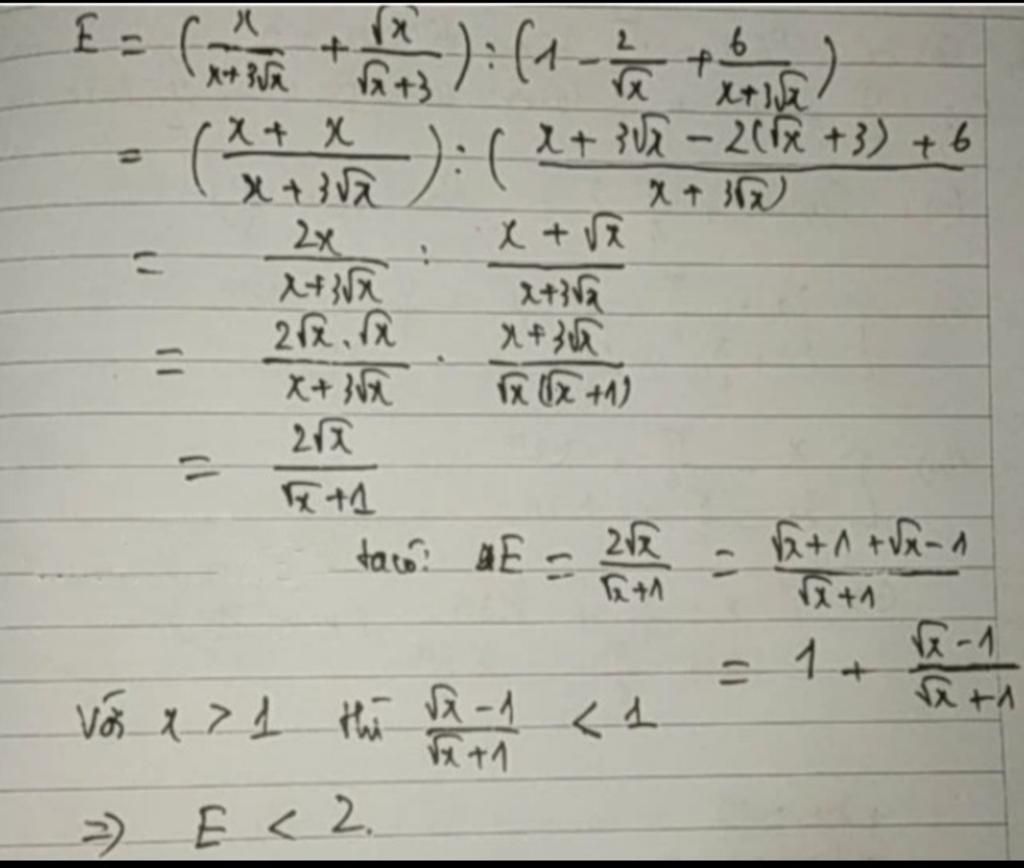 E = (x/(x+3√x) + √x/(√x+3)) : (1 - 2/√x + 6/(x+3√x))
= ((x + x)/(x + 3√x)) : ((x + 3√x - 2(√x + 3) + 6)/(x + 3√x))
= 2x/(x+3√x) : (x + √x)/(x+3√x)
= (2√x . √x)/(x + 3√x) . (x + 3√x)/(√x(√x+1))
= 2√x/(√x+1)
ta có: E = 2√x/(√x+1) = (√x+1+√x-1)/(√x+1)
= 1 + (√x-1)/(√x+1)
Với x > 1 thì (√x-1)/(√x+1) < 1
=> E < 2.